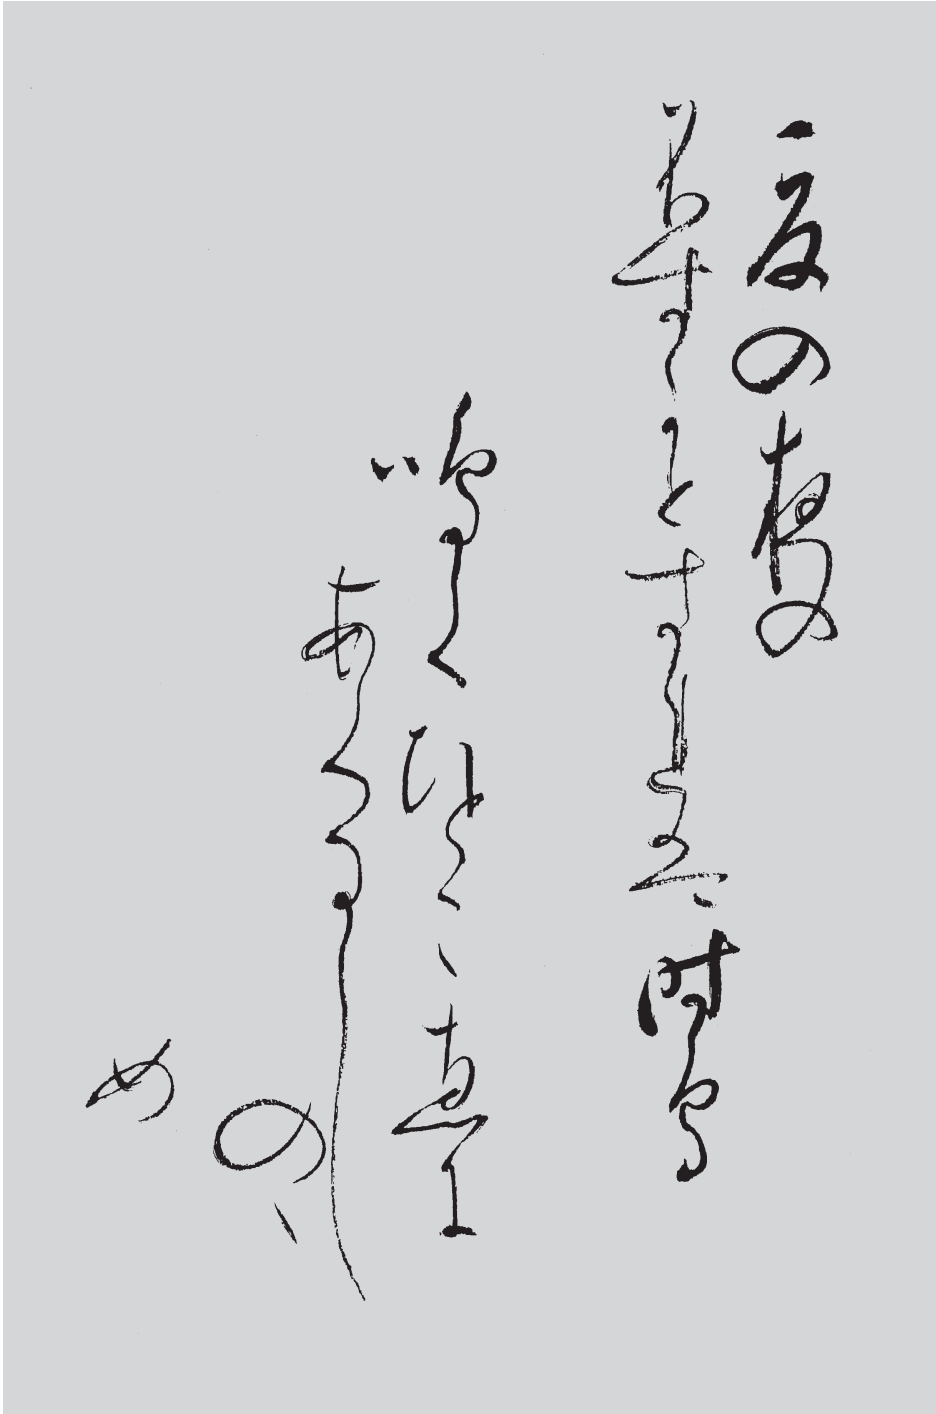 夏の夜の
ふすかとすれは時鳥
鳴くひとこ恵に
あくるし
のゝ
め